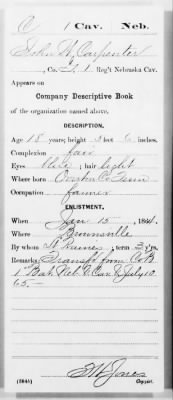 C | 1 | Cav. | Neb.
John W. Carpenter
, Co. I, 1 Reg't Nebraska Cav.
Appears on
Company Descriptive Book
of the organization named above.
DESCRIPTION.
Age 18 years; height 5 feet 6 inches.
Complexion fair
Eyes blue; hair light
Where born Overton Co Tenn
Occupation farmer
ENLISTMENT.
When Jan 15, 1864.
Where Brownsville
By whom Lt Raines; term 3 y'rs.
Remarks: Transf'd from Co B
1st Bat. Neb. V. Cav. July 10
65.—
Copyist.